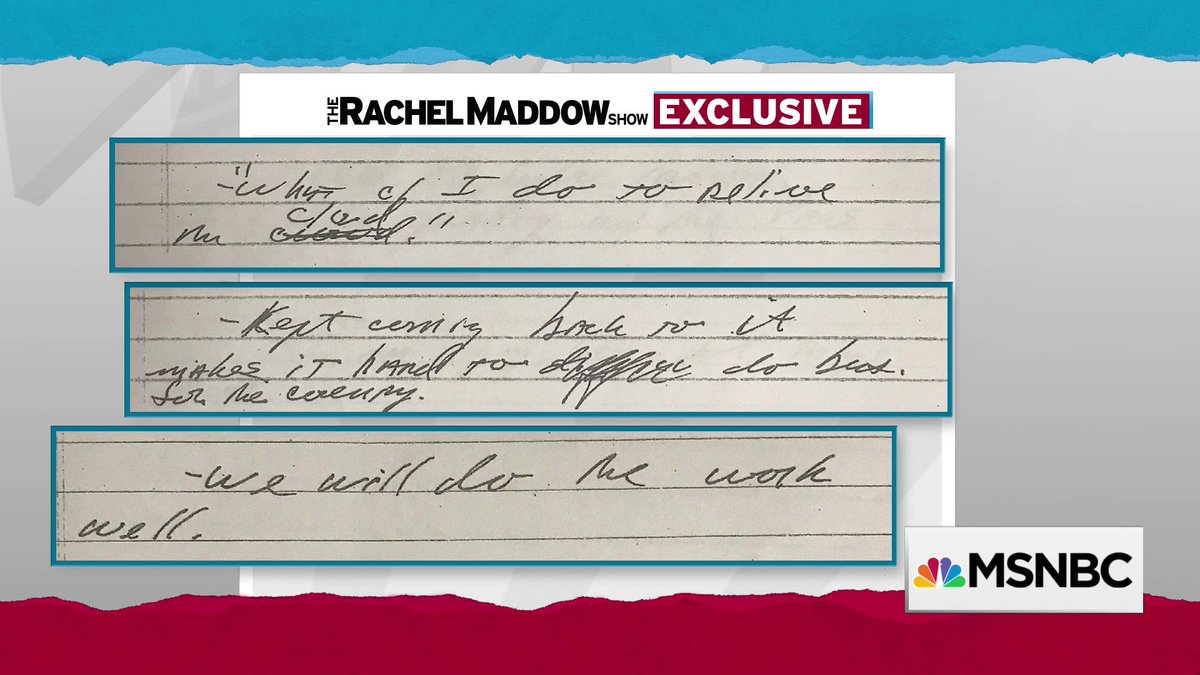 THE RACHEL MADDOW SHOW EXCLUSIVE
-"What c/ I do to relive
the cloud cloud."
-Kept coming back to it
makes it hard to do bus.
for the country.
-we will do the work
well.
MSNBC